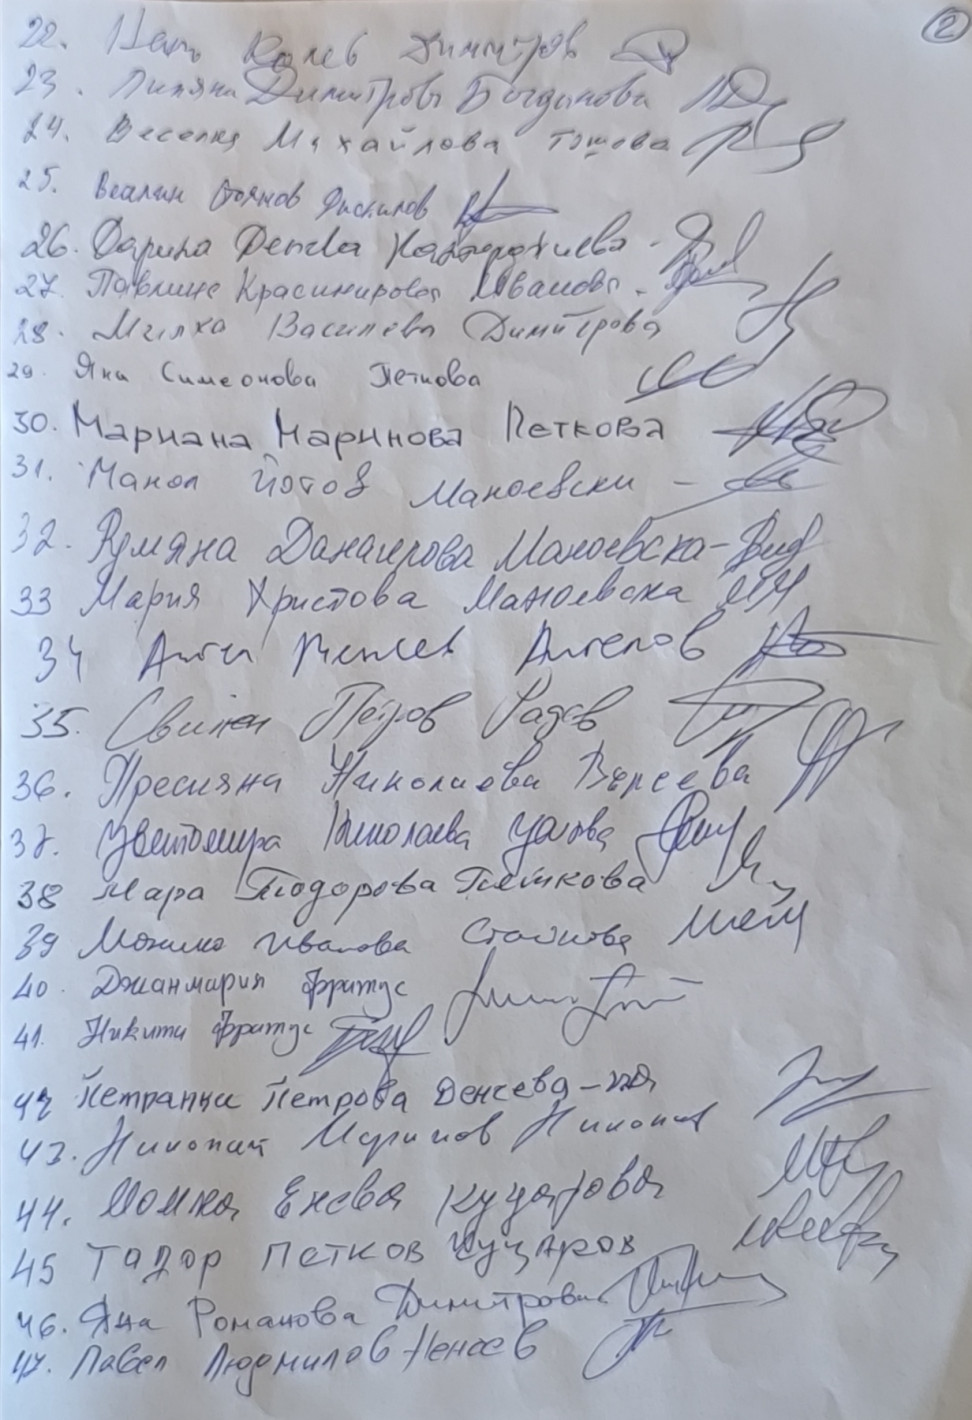 2
22. Колев Димитров
23. Лиляна Димитрова Богданова
24. Веселка Михайлова Тошова
25. Веалин Стоянов
26. Дарина Денева
27. Павлина Красимирова Иванова
28. Милка Василева Димитрова
29. Яна Симеонова Петкова
30. Мариана Маринова Петкова
31. Манол Йотов Маноевски
32. Румяна Данаилова Маноевска
33 Мария Христова Маноевска
34 Ангел Ангелов
35. Свилен Петров Радев
36. Пресияна Николаева
37. Цветомира Николаева
38 Мара Тодорова Петкова
39 Иванова
40. Джанмария Фратус
41. Никити Фратус
42 Петранка Петрова Денчева
43. Николай Маринов Николов
44. Момка Енева Куцарова
45 Тодор Петков Куцаров
46. Яна Романова Димитрова
47. Павел Людмилов Ненчев